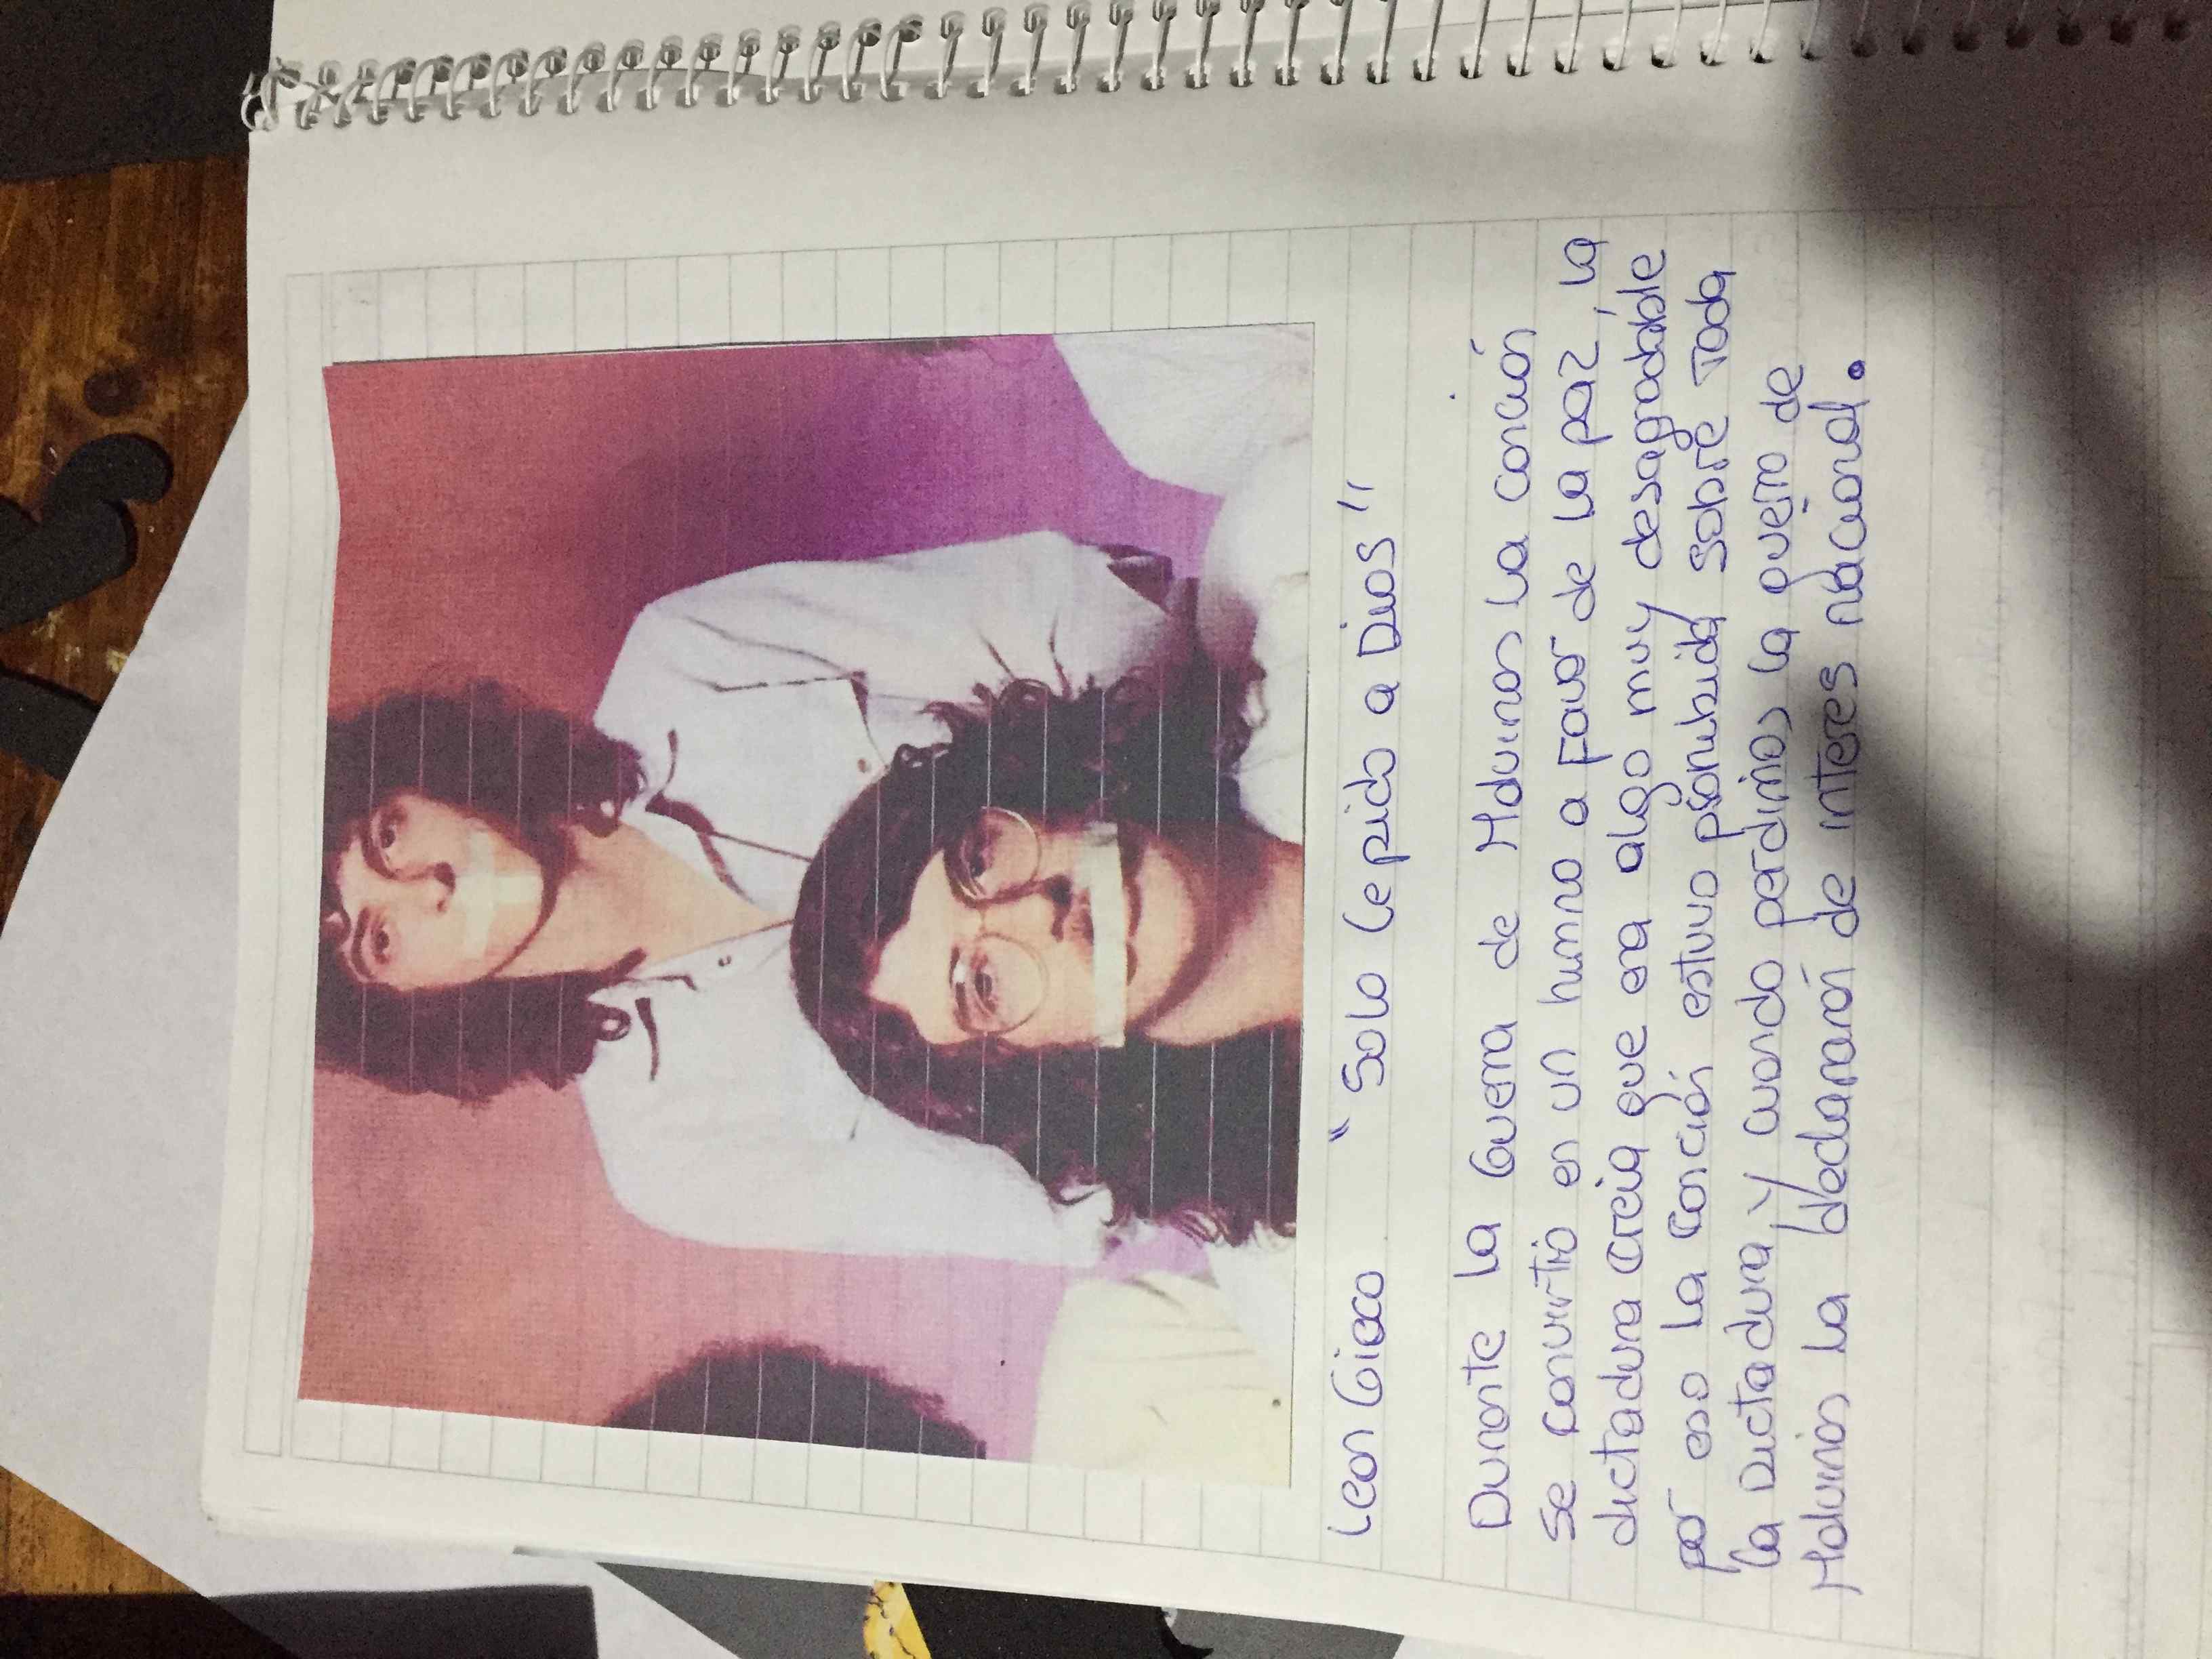 Leon Gieco "Solo le pido a Dios"
Durante la Guerra de Malvinas la canción
se convirtio en un himno a favor de la paz, la
dictadura creia que era algo muy desagradable
por eso la canción estuvo prohibida sobre toda
la Dictadura y cuando perdimos la guerra de
Malvinas la declararón de interes nacional.